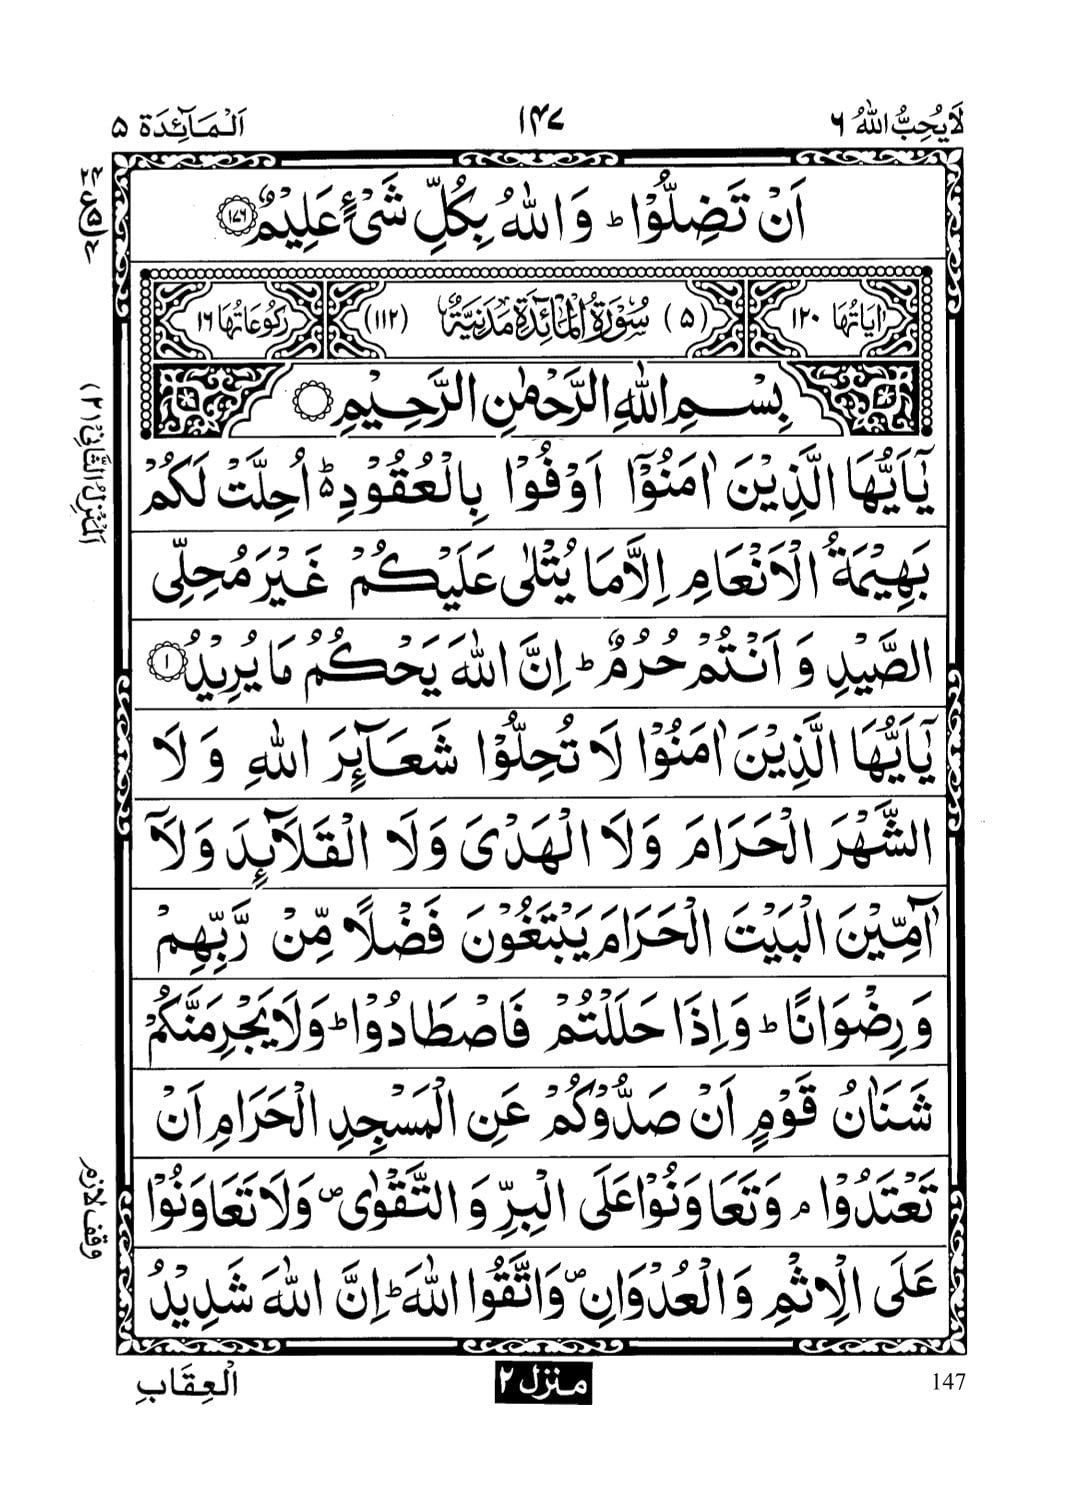 لَا يُحِبُّ اللّٰهُ ۶
۱۴۷
اَلْمَآئِدَة ۵
اَنْ تَضِلُّوْا ؕ وَ اللّٰهُ بِكُلِّ شَیْءٍ عَلِیْمٌ ۱۷۶
اٰیَاتُهَا ۱۲۰
(۵) سُوْرَةُ الْمَآئِدَةِ مَدَنِیَّةٌ (۱۱۲)
رُكُوْعَاتُهَا ۱۶
بِسْمِ اللّٰهِ الرَّحْمٰنِ الرَّحِیْمِ
یٰۤاَیُّهَا الَّذِیْنَ اٰمَنُوْۤا اَوْفُوْا بِالْعُقُوْدِ ؕ۬ اُحِلَّتْ لَكُمْ
بَهِیْمَةُ الْاَنْعَامِ اِلَّا مَا یُتْلٰی عَلَیْكُمْ غَیْرَ مُحِلِّی
الصَّیْدِ وَ اَنْتُمْ حُرُمٌ ؕ اِنَّ اللّٰهَ یَحْكُمُ مَا یُرِیْدُ ۱
یٰۤاَیُّهَا الَّذِیْنَ اٰمَنُوْا لَا تُحِلُّوْا شَعَآئِرَ اللّٰهِ وَ لَا
الشَّهْرَ الْحَرَامَ وَ لَا الْهَدْیَ وَ لَا الْقَلَآئِدَ وَ لَاۤ
آٰمِّیْنَ الْبَیْتَ الْحَرَامَ یَبْتَغُوْنَ فَضْلًا مِّنْ رَّبِّهِمْ
وَ رِضْوَانًا ؕ وَ اِذَا حَلَلْتُمْ فَاصْطَادُوْا ؕ وَ لَا یَجْرِمَنَّكُمْ
شَنَاٰنُ قَوْمٍ اَنْ صَدُّوْكُمْ عَنِ الْمَسْجِدِ الْحَرَامِ اَنْ
تَعْتَدُوْا ۘ وَ تَعَاوَنُوْا عَلَی الْبِرِّ وَ التَّقْوٰی ۪ وَ لَا تَعَاوَنُوْا
عَلَی الْاِثْمِ وَ الْعُدْوَانِ ۪ وَ اتَّقُوا اللّٰهَ ؕ اِنَّ اللّٰهَ شَدِیْدُ
الْعِقَابِ
منزل ۲
147
اَلْمَنْزِلُ الثَّانِیْ (۲)
وقف لازم